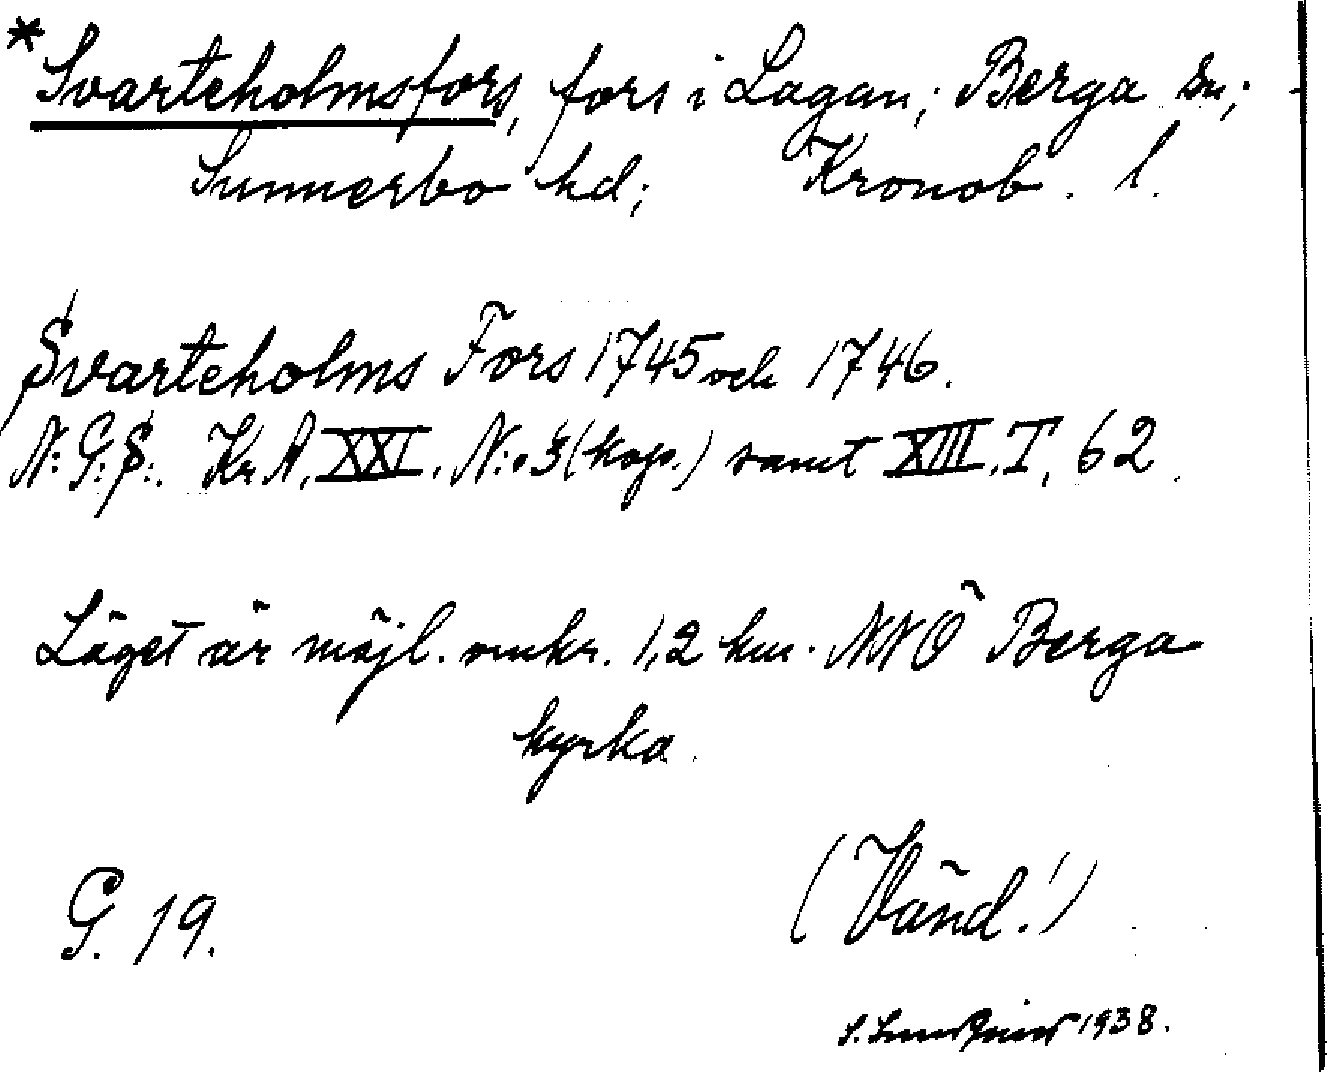 *Svarteholmsfors, fors i Lagan; Berga sn;
Sunnerbo hd; Kronob. l.
Svarteholms Fors 1745 och 1746.
N: G: S:. Kr. A, XXI. N:o 3 (kop.) samt XIII. I, 62.
Läget är möjl. omkr. 1,2 km. NNÖ Berga
kyrka.
G. 19. (Vänd!)
S. 1938.